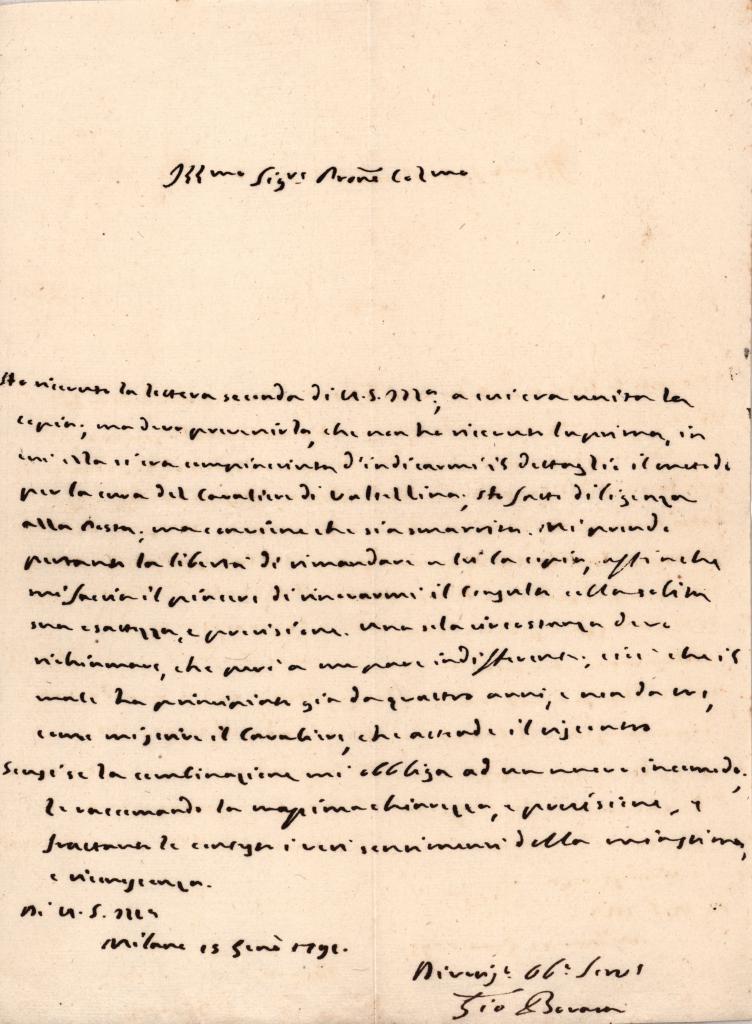 Illmo Sigr Prone Colmo
Ho ricevuto la lettera seconda di V.S. Illa, a cui era unita la
copia; ma devo prevenirla, che non ho ricevuto la prima, in
cui ella si era compiaciuta d'indicarmi il dettaglio il metodo
per la cura del Cavaliere di Valtellina; Ho fatto diligenza
alla Posta, ma conviene che sia smarrita. Mi prendo
pertanto la libertà di rimandare a lei la copia, affinche
mi facia il piacere di rinovarmi il Consulto colla solita
sua esattezza, e precisione. Una sola circostanza devo
richiamare, che però a me pare indifferente; cioè che il
male ha principiato già da quattro anni, e non da
come mi scrive il Cavaliere, che attende il riscontro
Scusi se la combinazione mi obbliga ad un nuovo incomodo.
le raccomando la massima chiarezza, e precisione, e
frattanto le i veri sentimenti della mia stima,
e riconoscenza.
Di V.S. Illa
Milano 15 Gen 1791.
Obo Servo
Gio